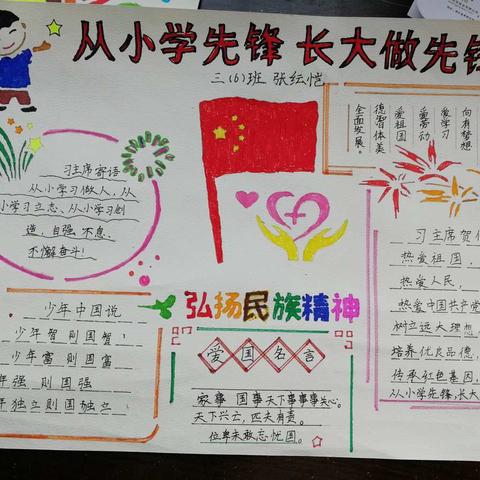 从小学先锋 长大做先锋
三(6)班 张纭恺
习主席寄语
从小学习做人,从
小学习立志、从小学习创
造,自强不息、
不懈奋斗!
向有梦想
爱学习
爱劳动
爱祖国
德智体美
全面发展。
少年中国说
少年智则国智;
少年富则国富
年强则国强
年独立则国独立
弘扬民族精神
爱国名言
家事国事天下事事事关心。
天下兴亡,匹夫有责。
位卑未敢忘忧国。
习主席贺
热爱祖国,
热爱人民,
热爱中国共产党
树立远大理想,
培养优良品德,
传承红色基因,
从小学先锋,长大